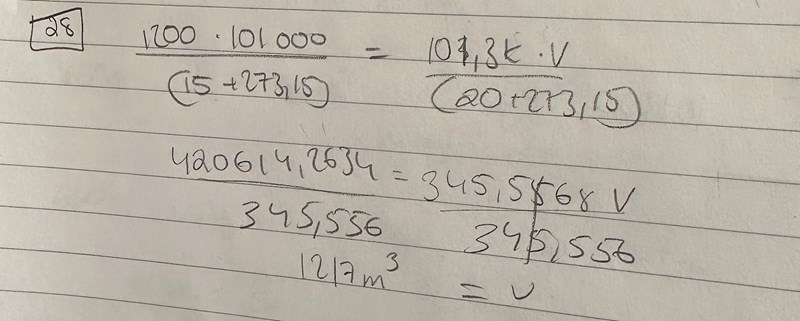 28
1200 · 101000 / (15+273,15) = 101,3k · V / (20+273,15)
420614,2634 / 345,556 = 345,5568 V / 345,556
1217m³ = V